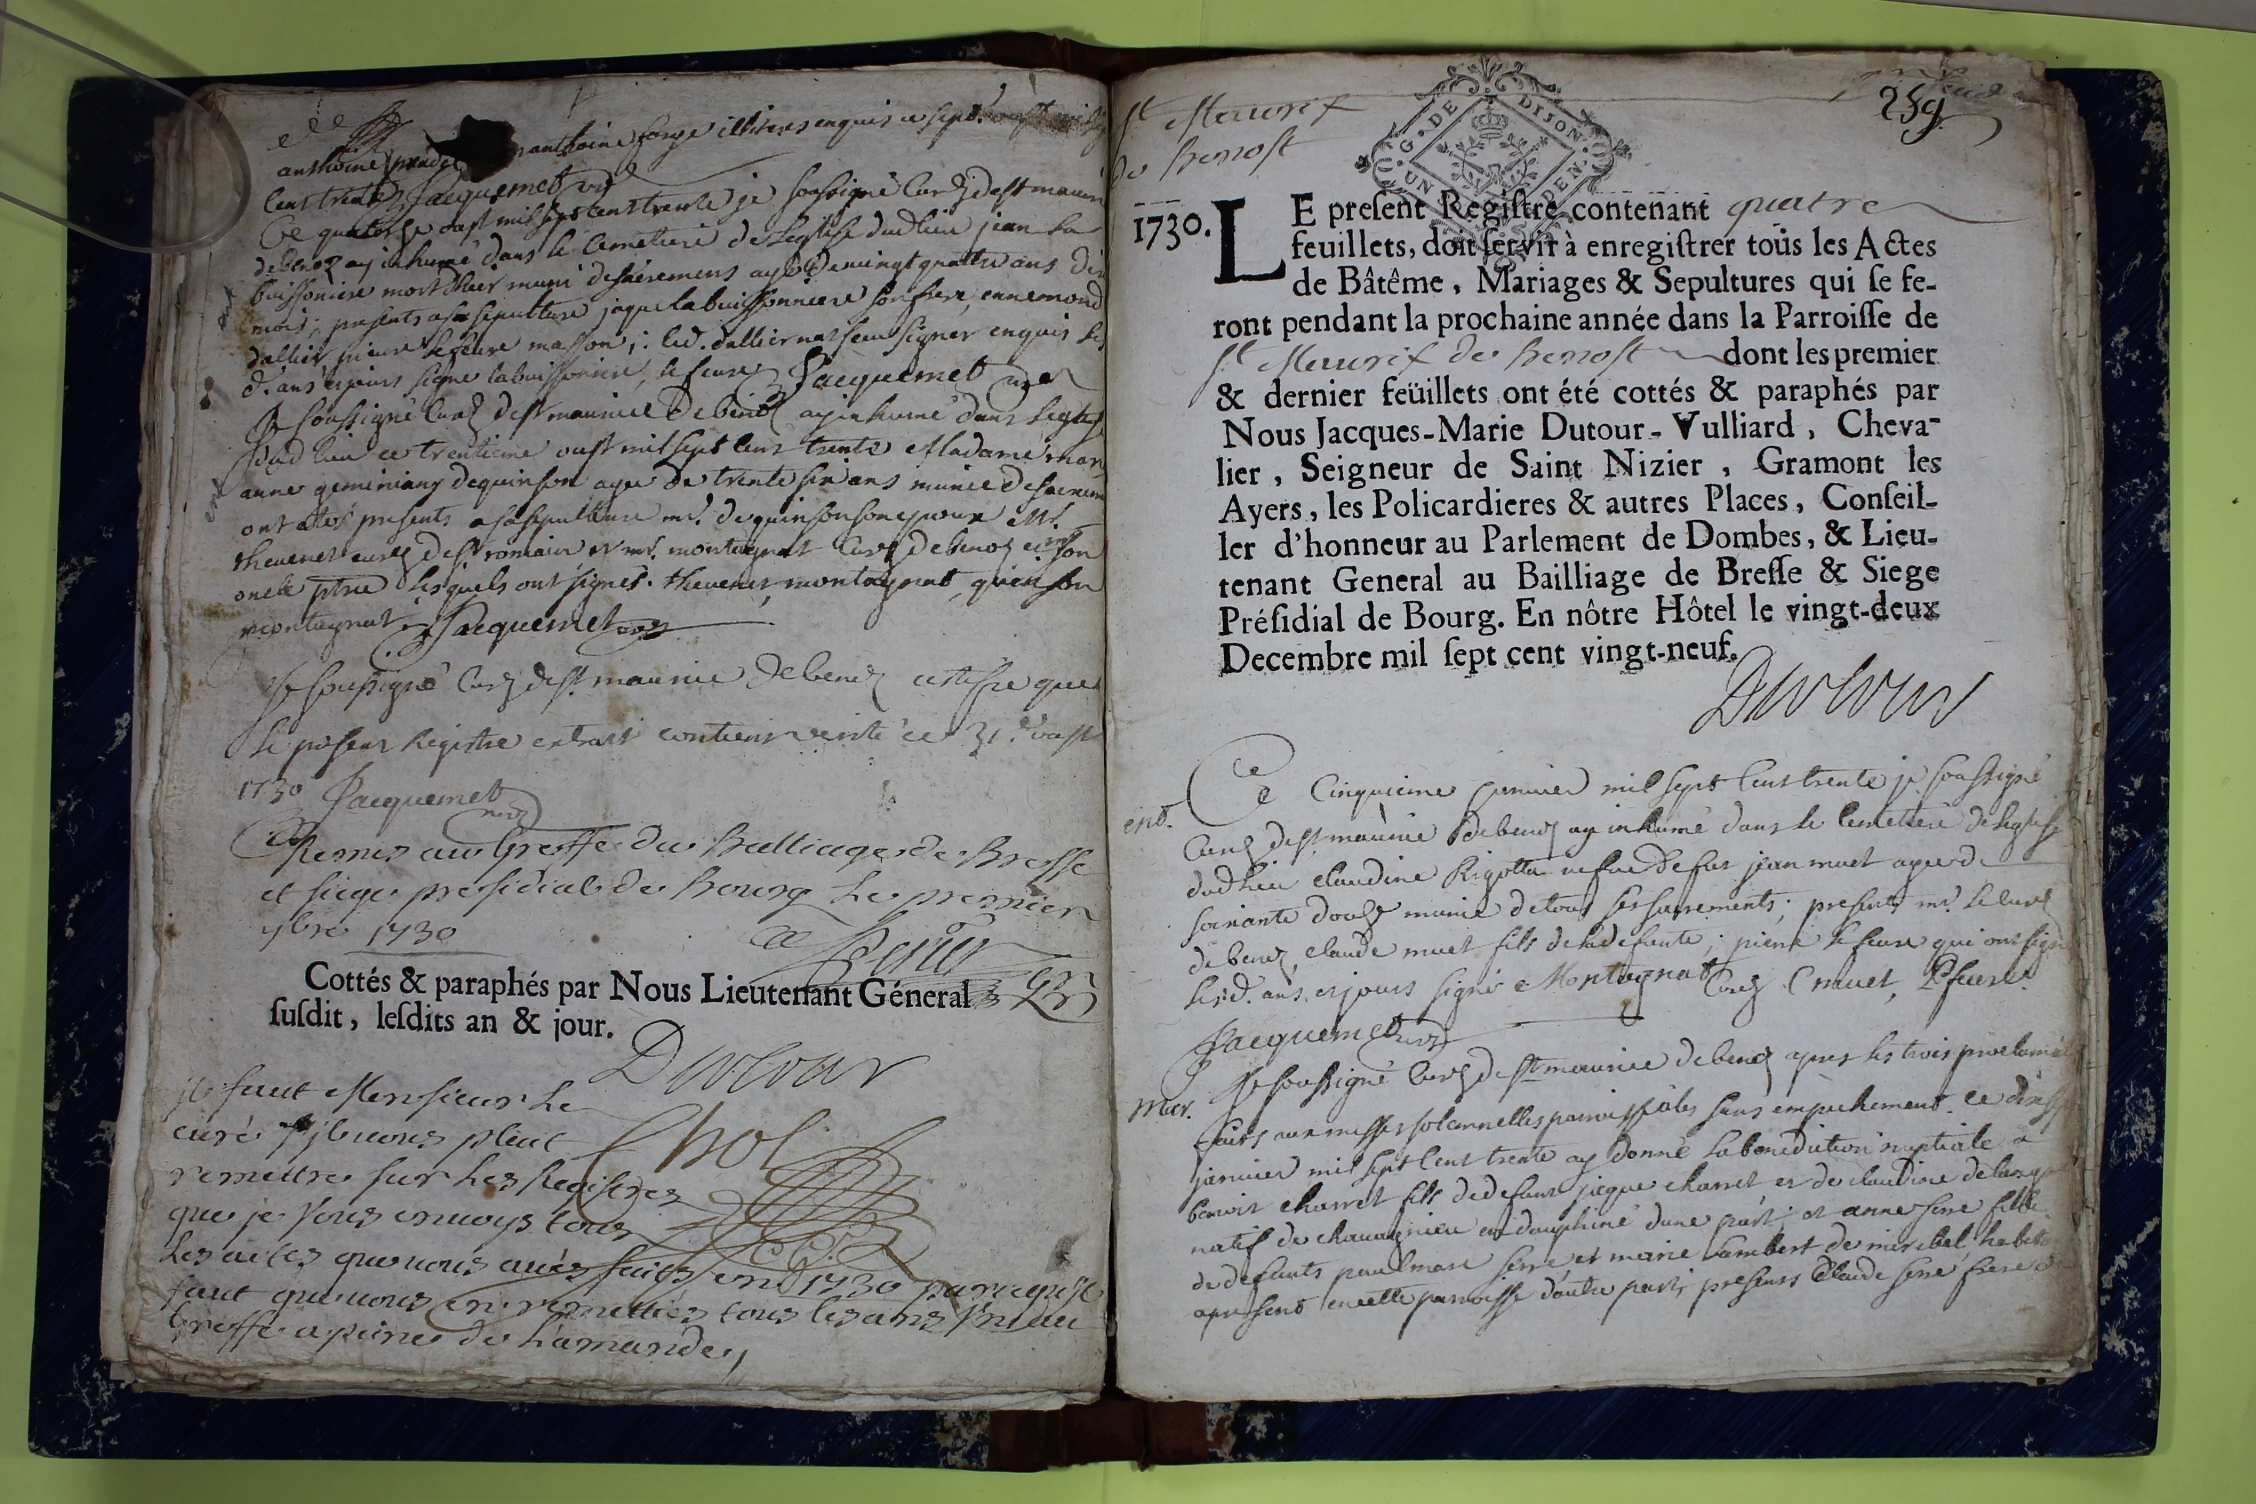 anthoine illiteres enquis ce sept.
cent trente Jacquemet curé
Ce quatorze aoust mil sept cent trente je soussigné Curé de st maurice
de benoz ay inhumé dans le Cemetiere de Leglise dud lieu jean La
buissoniere mort d'hier muni de sacremens agé de vingt quattre ans dix
mois; presents a sa sepulture jaque labuissonniere son frere, ennemond
dallier, pierre lefeure masson; led. dallier na sceu signer enquis les
d. ans et jours signé labuissoniere, lefeure Jacquemet curé
Je soussigné Curé de st maurice De benoz ay inhumé dans leglise
dud lieu ce trentieme oust mil sept cent trente Madame
anne de quinson agée de trente six ans munie de
ont etes presents a sa sepulture mr. de quinson son epoux Mr.
thevenet curé de st romain et mr. montagnat Curé de benoz et son
oncle ptre lesquels ont signés. thevenet, montagnat, quinson
montagnat Jacquemet curé
Je soussigné Curé de st maurice De benoz certifie que
le present Registre extrait contient verité ce 31e oust
1730 Jacquemet
curé
Remis au Greffe du Balliage de Bresse
et siege presidial de bourg le premier
7bre 1730
Cottés & paraphés par Nous Lieutenant Géneral
susdit, lesdits an & jour.
Dutour
il faut Monsieur le
curé s'il vous plait
remettre sur les Registres
que je vous envoys tous
les actes que vous avés faits en 1730 parce qu'il
faut que vous en remettiés tous les ans un au
Greffe a peine de L'amande
St Maurix
de benost
G. DE DIJON
UN DEN.
259
1730. LE present Registre contenant quatre
feuillets, doit servir à enregistrer toüs les Actes
de Bâtême, Mariages & Sepultures qui se fe-
ront pendant la prochaine année dans la Parroisse de
St Maurix de benost dont les premier
& dernier feüillets ont été cottés & paraphés par
Nous Jacques-Marie Dutour-Vulliard, Cheva-
lier, Seigneur de Saint Nizier, Gramont les
Ayers, les Policardieres & autres Places, Conseil-
ler d'honneur au Parlement de Dombes, & Lieu-
tenant General au Bailliage de Bresse & Siege
Présidial de Bourg. En nôtre Hôtel le vingt-deux
Decembre mil sept cent vingt-neuf.
Dutour
ent. Ce Cinquieme janvier mil sept Cent trente je soussigné
Curé de st maurice de benoz ay inhumé dans le Cemetiere de leglise
dud lieu claudine Rigottier vefue de feu jean muet agee de
soixante douze munie de tous ses sacrements; presents mr. le curé
de benoz, claude muet fils de la defunte; pierre lefeure qui ont signé
les d. ans et jours signé Montagnat Curé C muet, P lefeure.
Jacquemet curé
mar. Je soussigné Curé de st maurice de benoz apres les trois
faits aux messes solannelles paroissiales sans empechement ce
janvier mil sept Cent trente ay donné la benediction nuptiale a
benoit charret fils de defunt jaque charret et de claudine
natif de chavagnieu en dauphiné d'une part; et anne serre fille
de defunts paul marc serre et marie Lambert de miribel,
apresent en cette paroisse d'autre part; presents Claude serre frere